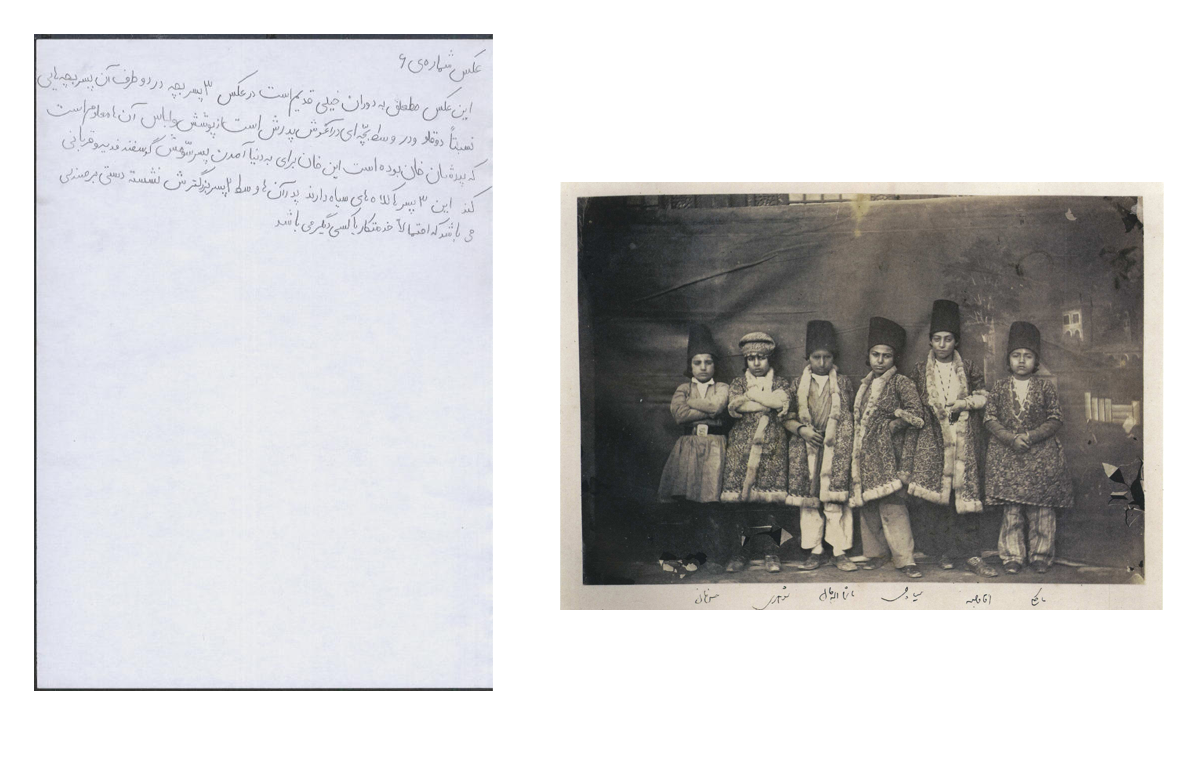 عکس شماره‌ی ۶
این عکس مطعلق به دوران خیلی قدیم است در عکس ۳ پسر بچه در دو طرف آن پسر بچه‌هایی
نسبتاً دوقلو و در وسط بچّه‌ای در آغوش پدرش است از پوشش و لباس آن ها معلوم است
که پدرشان خان بوده است این خان برای به دنیا آمدن پسر سوّمش گوسفند فدیه و قربانی
کند این ۳ پسر کلاه های سیاه دارند پدر آن ها وسط ۲ پسر بزرگترش نشسته دستی بر صندلی
می باشد که احتمالاً خدمتکار یا کسی دیگر می باشد